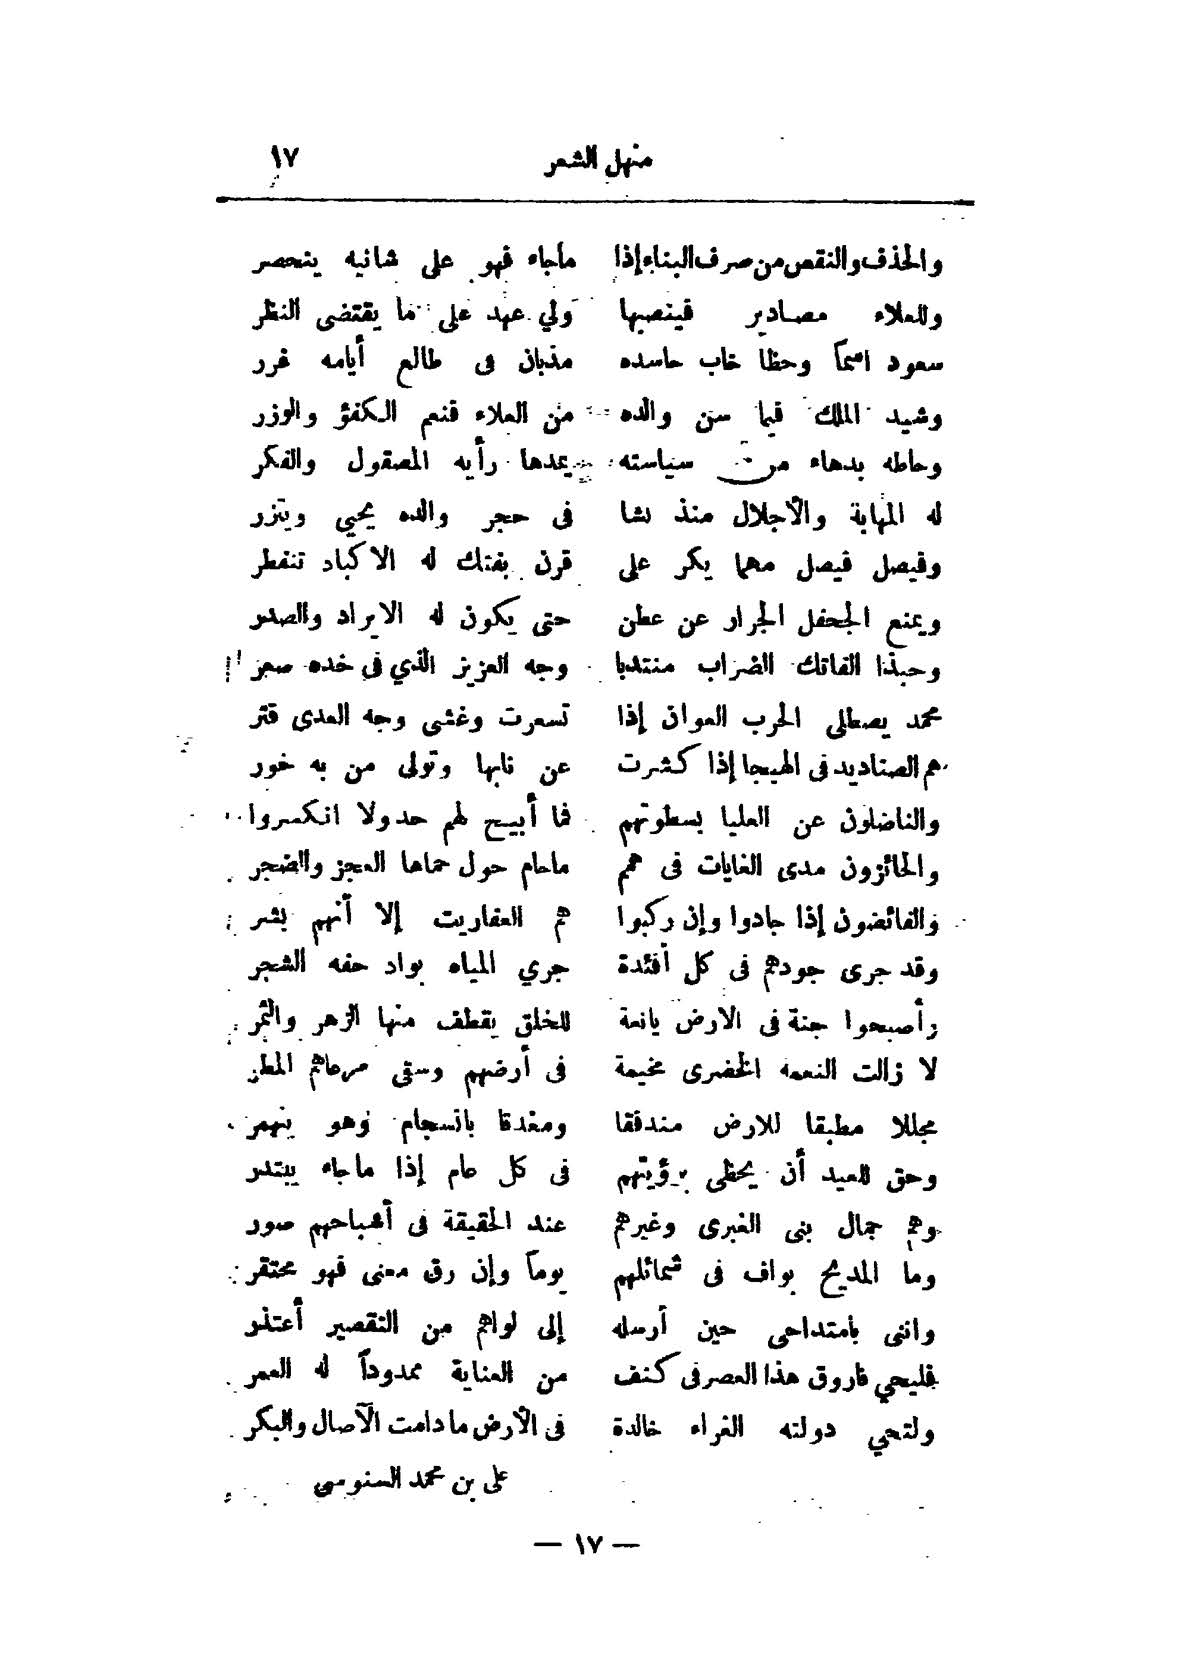 منهل الشعر ١٧
والحذف والنقص من صرف البناء إذا ماجاء فهو على شانيه ينحصر
وللعلاء مصادير فينصبها ولي عهد على ما يقتضى النظر
سعود اسماً وحظا خاب حاسده مذبان فى طالع أيامه غرر
وشيد الملك فيما سن والده من العلاء فنعم الكفؤ والوزر
وحاطه بدهاء من سياسته يمدها رأيه المصقول والفكر
له المهابة والأجلال منذ نشا فى حجر والده يحيي ويتزر
وفيصل فيصل مهما يكر على قرن بفتك له الاكباد تنفطر
ويمنع الجحفل الجرار عن عطن حتى يكون له الايراد والصدر
وحبذا الفاتك الضراب منتدبا وجه العزيز الذي فى خده صعر
محمد يصطلى الحرب العوان إذا تسعرت وغشى وجه العدى قتر
هم الصناديد فى الهيجا إذا كشرت عن نابها وتولى من به خور
والناضلون عن العليا بسطوتهم فما أبيح لهم حدولا انكسروا
والحائزون مدى الغايات فى همم ماحام حول حماها العجز والضجر
والفائضون إذا جادوا وإن ركبوا هم العفاريت إلا أنهم بشر
وقد جرى جودهم فى كل أفئدة جري المياه بواد حفه الشجر
وأصبحوا جنة فى الارض يانعة للخلق يقطف منها الزهر والثمر
لا زالت النعمه الخضرى مخيمة فى أرضهم وسقى مرعاهم المطر
مجللا مطبقا للارض مندفقا ومغدقا بانسجام وهو ينهمر
وحق للعيد أن يحظى برؤيتهم فى كل عام إذا ماجاء يبتدر
وهم جمال بنى الغبرى وغيرهم عند الحقيقة فى أشباحهم صور
وما المديح بواف فى شمائلهم يوماً وإن رق معنى فهو محتقر
وانى بامتداحى حين أرسله إلى لواهم من التقصير أعتذر
فليحي فاروق هذا العصر فى كنف من العناية ممدوداً له العمر
ولتحي دولته الغراء خالدة فى الأرض مادامت الآصال والبكر
على بن محمد السنوسى
— ١٧ —